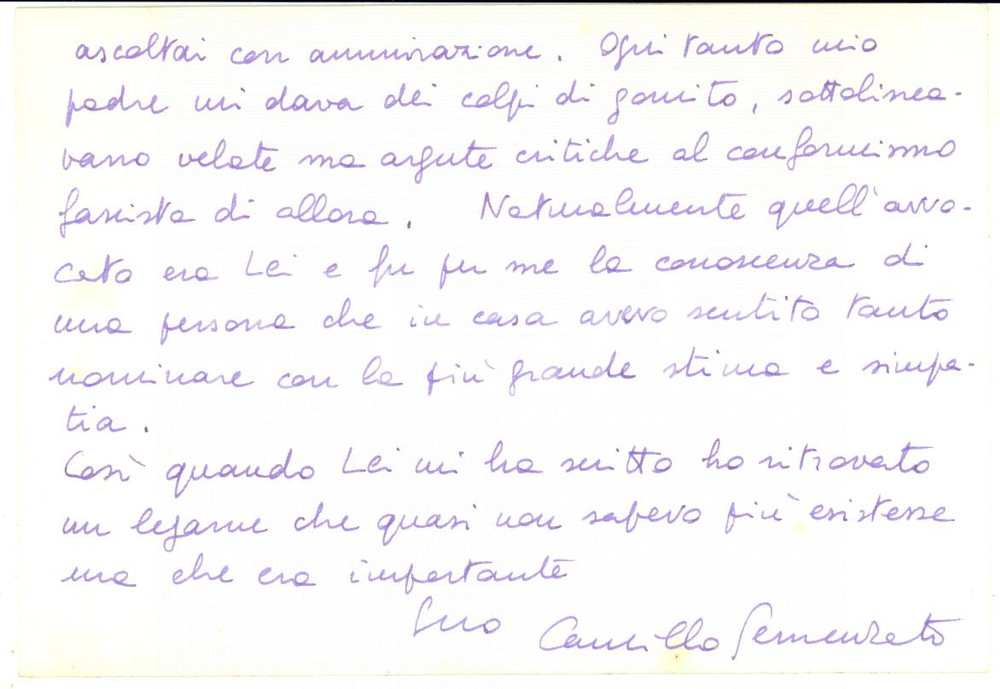 ascoltai con ammirazione. Ogni tanto mio
padre mi dava dei colpi di gomito, sottolinea-
vano velate ma argute critiche al conformismo
fascista di allora. Naturalmente quell'avvo-
cato era Lei e fu per me la conoscenza di
una persona che in casa avevo sentito tanto
nominare con la più grande stima e simpa-
tia.
Così quando Lei mi ha scritto ho ritrovato
un legame che quasi non sapevo più esistesse
ma che era importante
Suo Camillo Semenzato